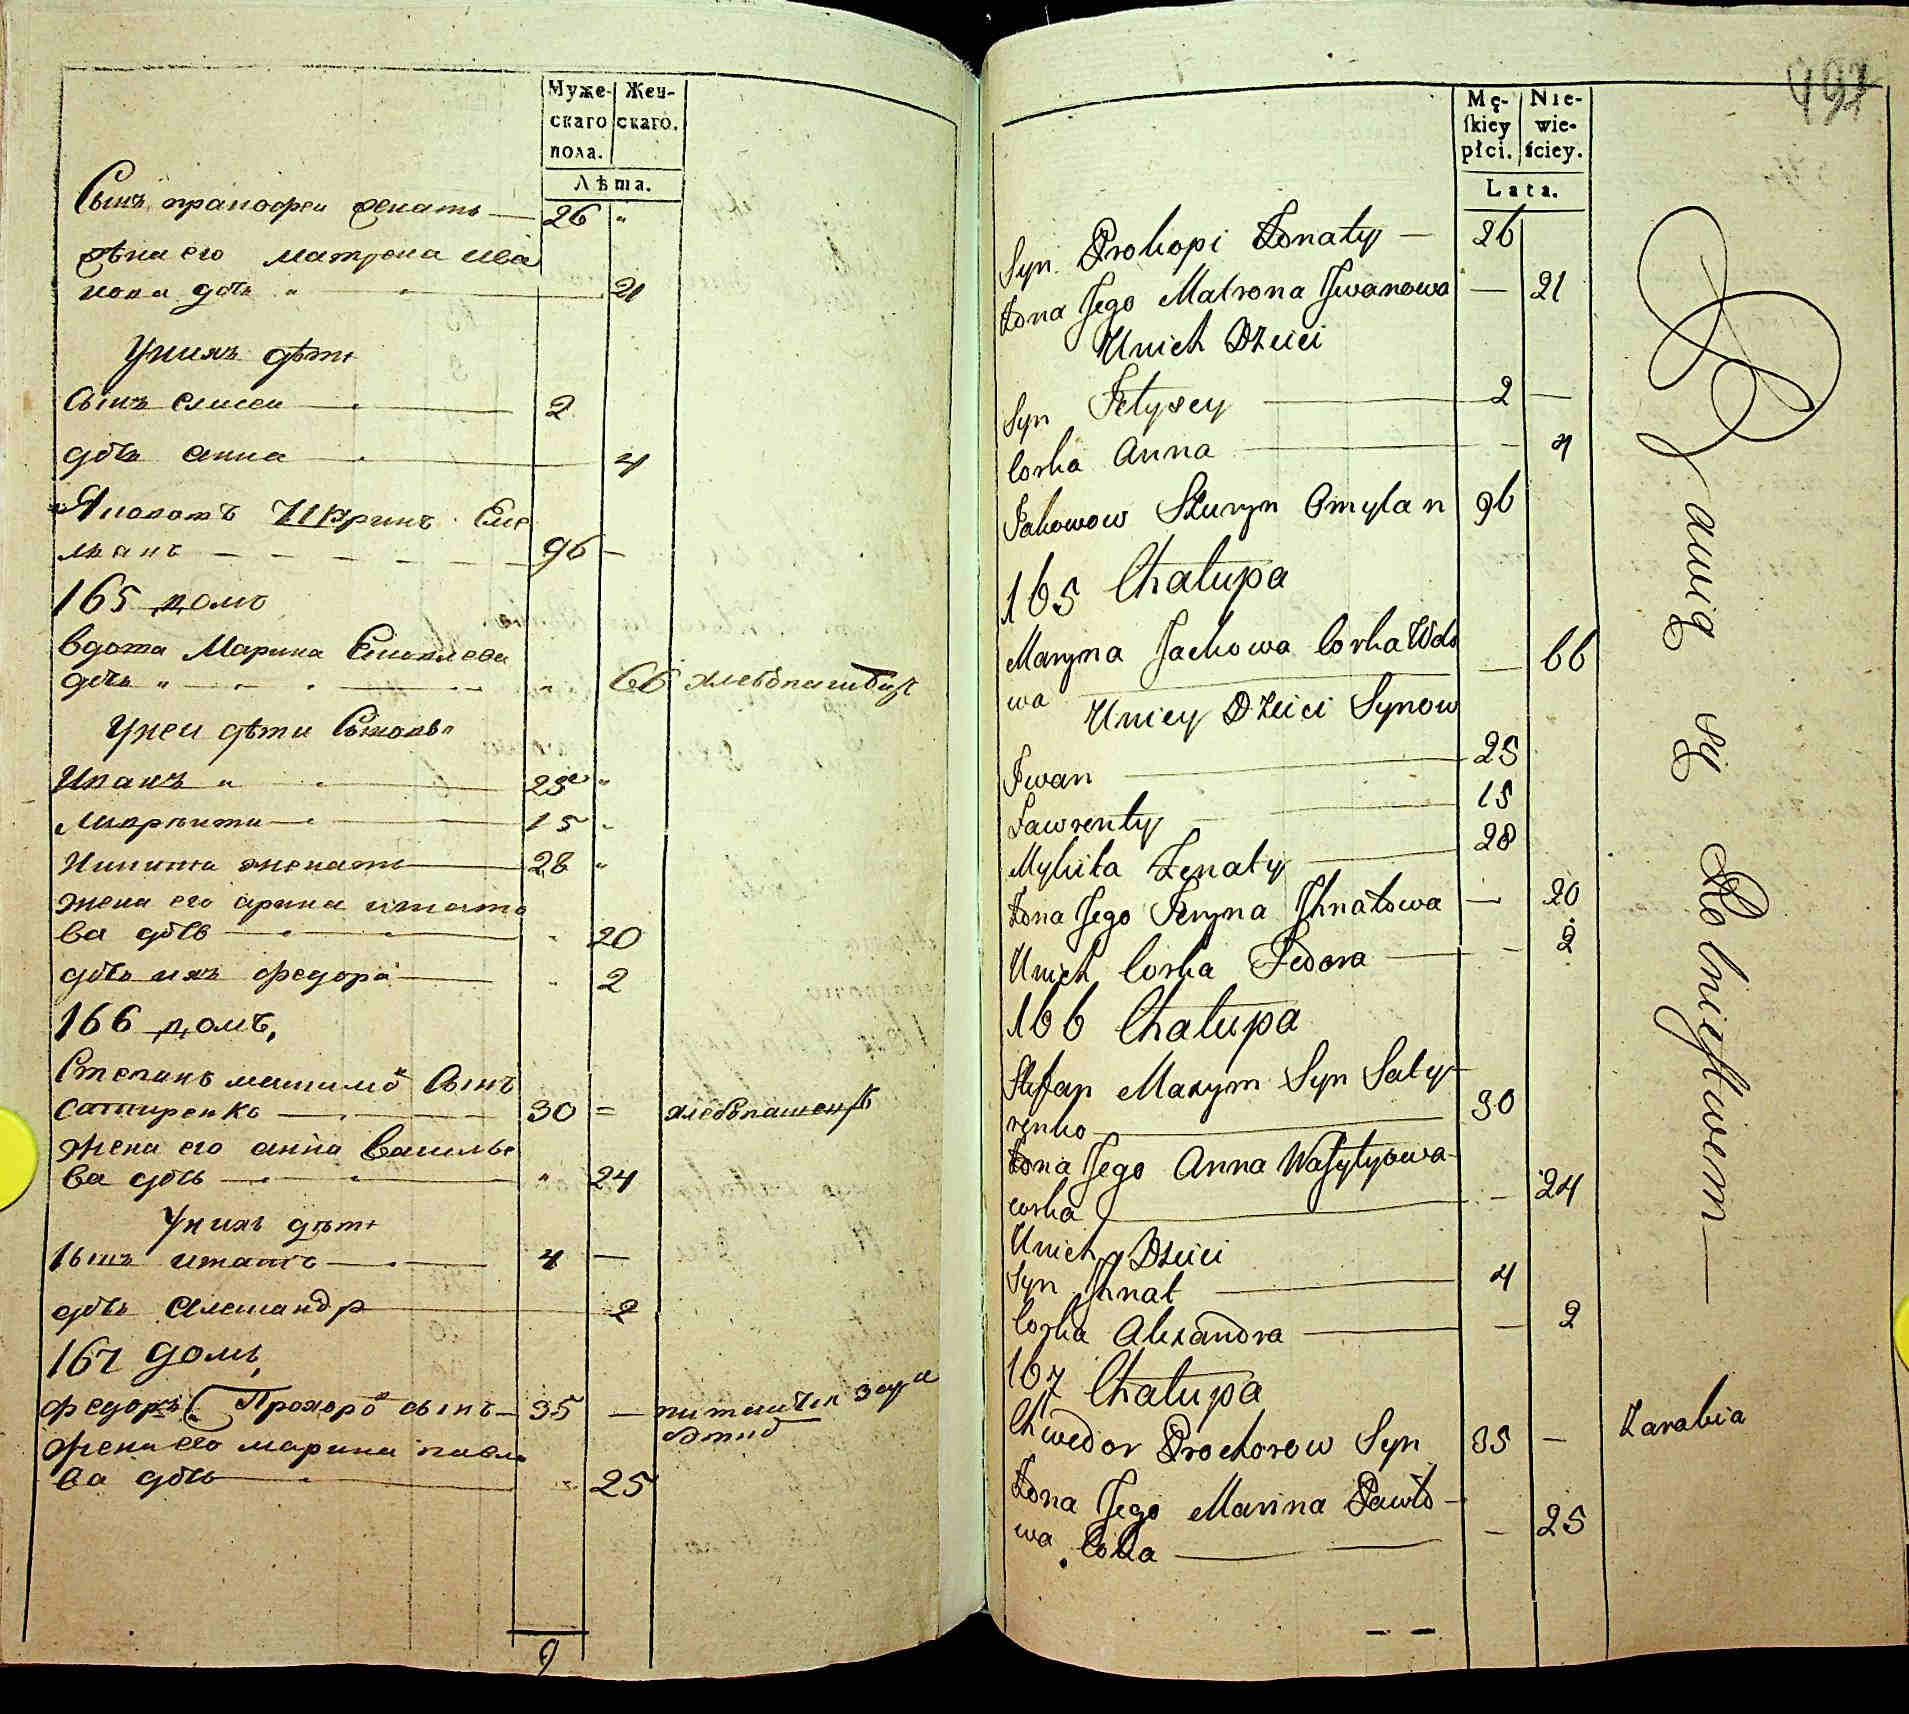 Муже- Жен-
скаго скаго.
пола.
Лѣта.
Сынъ прапофеи женатъ — 26 "
жена его матрена ива
нова дочь " — 21
Унихъ дѣти
Сынъ елисеи — 2
дочь анна — 4
Яковотъ Шкринъ Еме
льянъ — 96 —
165 домъ
вдова Марина
дочь " — " 66 хлебопашецъ
Унеи дѣти Сыновь
Иванъ " — 25 "
Лаврентии — 15
Никита женатъ — 28 "
жена его арина игнато
ва дочь — 20
дочь ихъ федора — 2
166 домъ,
Степанъ максимо Сынъ
сатиренко — 30 = хлебопашецъ
жена его анна василье
ва дочь — " 24
Унихъ дѣти
Сынъ игнатъ — 4 —
дочь Александра — 2
167 домъ,
федоръ Прохоро сынъ — 35 —
жена его марина павло
ва дочь — 25
9
497
Mę- Nie-
ſkiey wie-
płci. ściey.
Lata.
Syn Prokopi Żonaty — 26
Żona Jego Matrona Jwanowa — 21
Unich Dzieci
Syn Jełysey — 2 —
Corka Anna — 4
Jakowow Szkuryn Omylan 96
165 Chałupa
Maryna Jackowa Corka Wdo — 66
wa
Uniey Dzieci Synow
Jwan — 25
Ławrenty — 15
Mykita Żenaty — 28
Żona Jego Jeryna Jhnatowa — 20
Unich Corka Fedora — 2
166 Chałupa
Stefan Maxym Syn Saty-
renko — 30
Żona Jego Anna Wasylyowa-
corka — 24
Unich Dzieci
Syn Jhnat — 4
Corka Alexandra — 2
167 Chałupa
Chwedor Prochorow Syn 35 — Zarabia
Żona Jego Marina Pawło-
wa Corka — 25
Bawią się Rolnictwem —